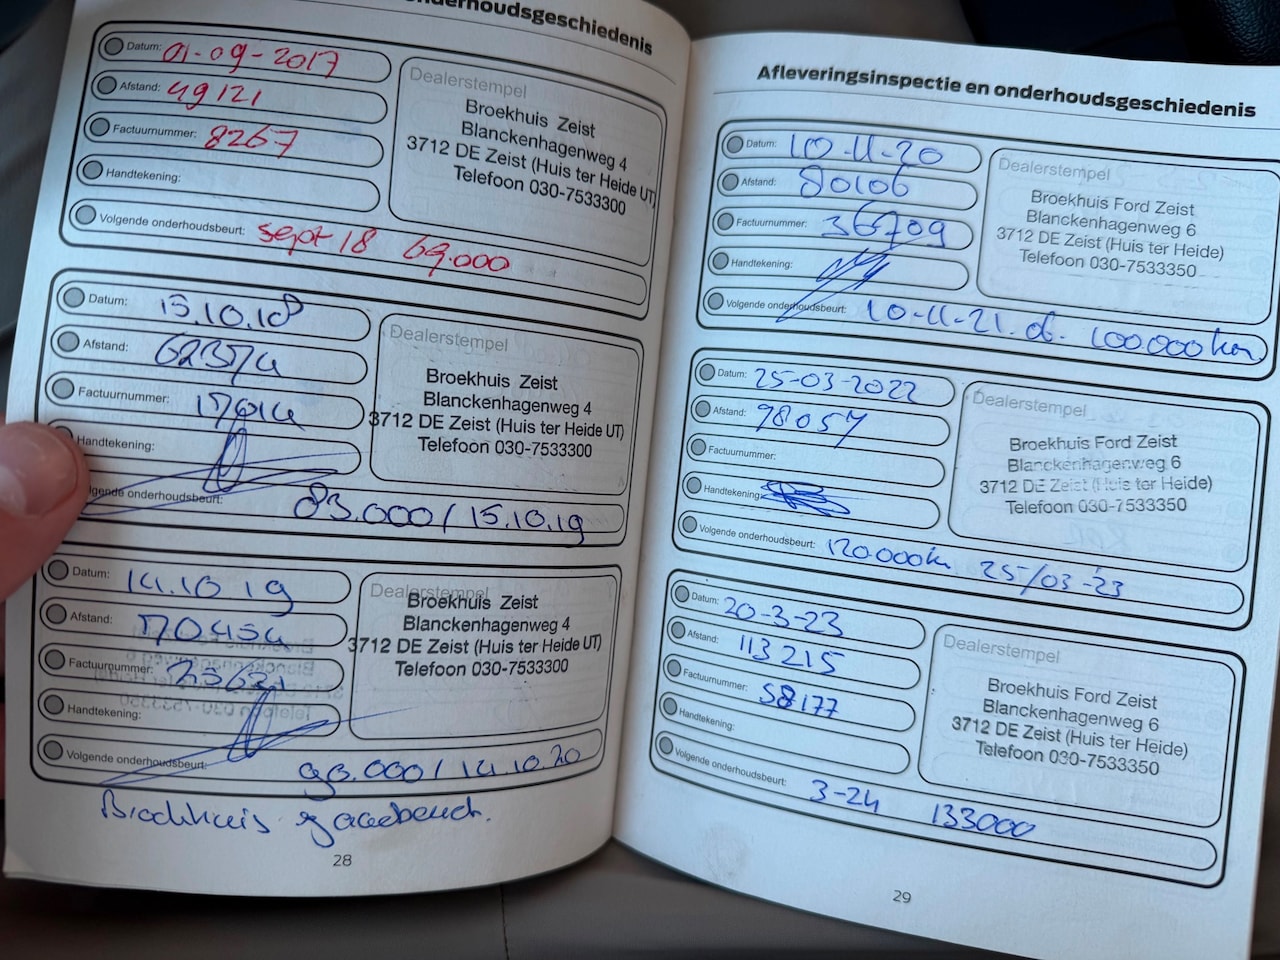 onderhoudsgeschiedenis
Datum: 01-09-2017
Afstand: 49121
Factuurnummer: 8267
Handtekening:
Volgende onderhoudsbeurt: sept 18 69.000
Dealerstempel
Broekhuis Zeist
Blanckenhagenweg 4
3712 DE Zeist (Huis ter Heide UT)
Telefoon 030-7533300
Datum: 15.10.18
Afstand:
Factuurnummer:
Handtekening:
lgende onderhoudsbeurt: 83.000 / 15.10.19
Dealerstempel
Broekhuis Zeist
Blanckenhagenweg 4
3712 DE Zeist (Huis ter Heide UT)
Telefoon 030-7533300
Datum: 14.10 19
Afstand:
Factuurnummer:
Handtekening:
Volgende onderhoudsbeurt: 90.000 / 14.10.20
Dealerstempel
Broekhuis Zeist
Blanckenhagenweg 4
3712 DE Zeist (Huis ter Heide UT)
Telefoon 030-7533300
28
Afleveringsinspectie en onderhoudsgeschiedenis
Datum: 10-11-20
Afstand: 80106
Factuurnummer: 36709
Handtekening:
Volgende onderhoudsbeurt: 10-11-21 of. 100.000 km
Dealerstempel
Broekhuis Ford Zeist
Blanckenhagenweg 6
3712 DE Zeist (Huis ter Heide)
Telefoon 030-7533350
Datum: 25-03-2022
Afstand: 98057
Factuurnummer:
Handtekening:
Volgende onderhoudsbeurt: 120.000km 25/03-'23
Dealerstempel
Broekhuis Ford Zeist
Blanckenhagenweg 6
3712 DE Zeist (Huis ter Heide)
Telefoon 030-7533350
Datum: 20-3-23
Afstand: 113215
Factuurnummer: 58177
Handtekening:
Volgende onderhoudsbeurt: 3-24 133000
Dealerstempel
Broekhuis Ford Zeist
Blanckenhagenweg 6
3712 DE Zeist (Huis ter Heide)
Telefoon 030-7533350
29